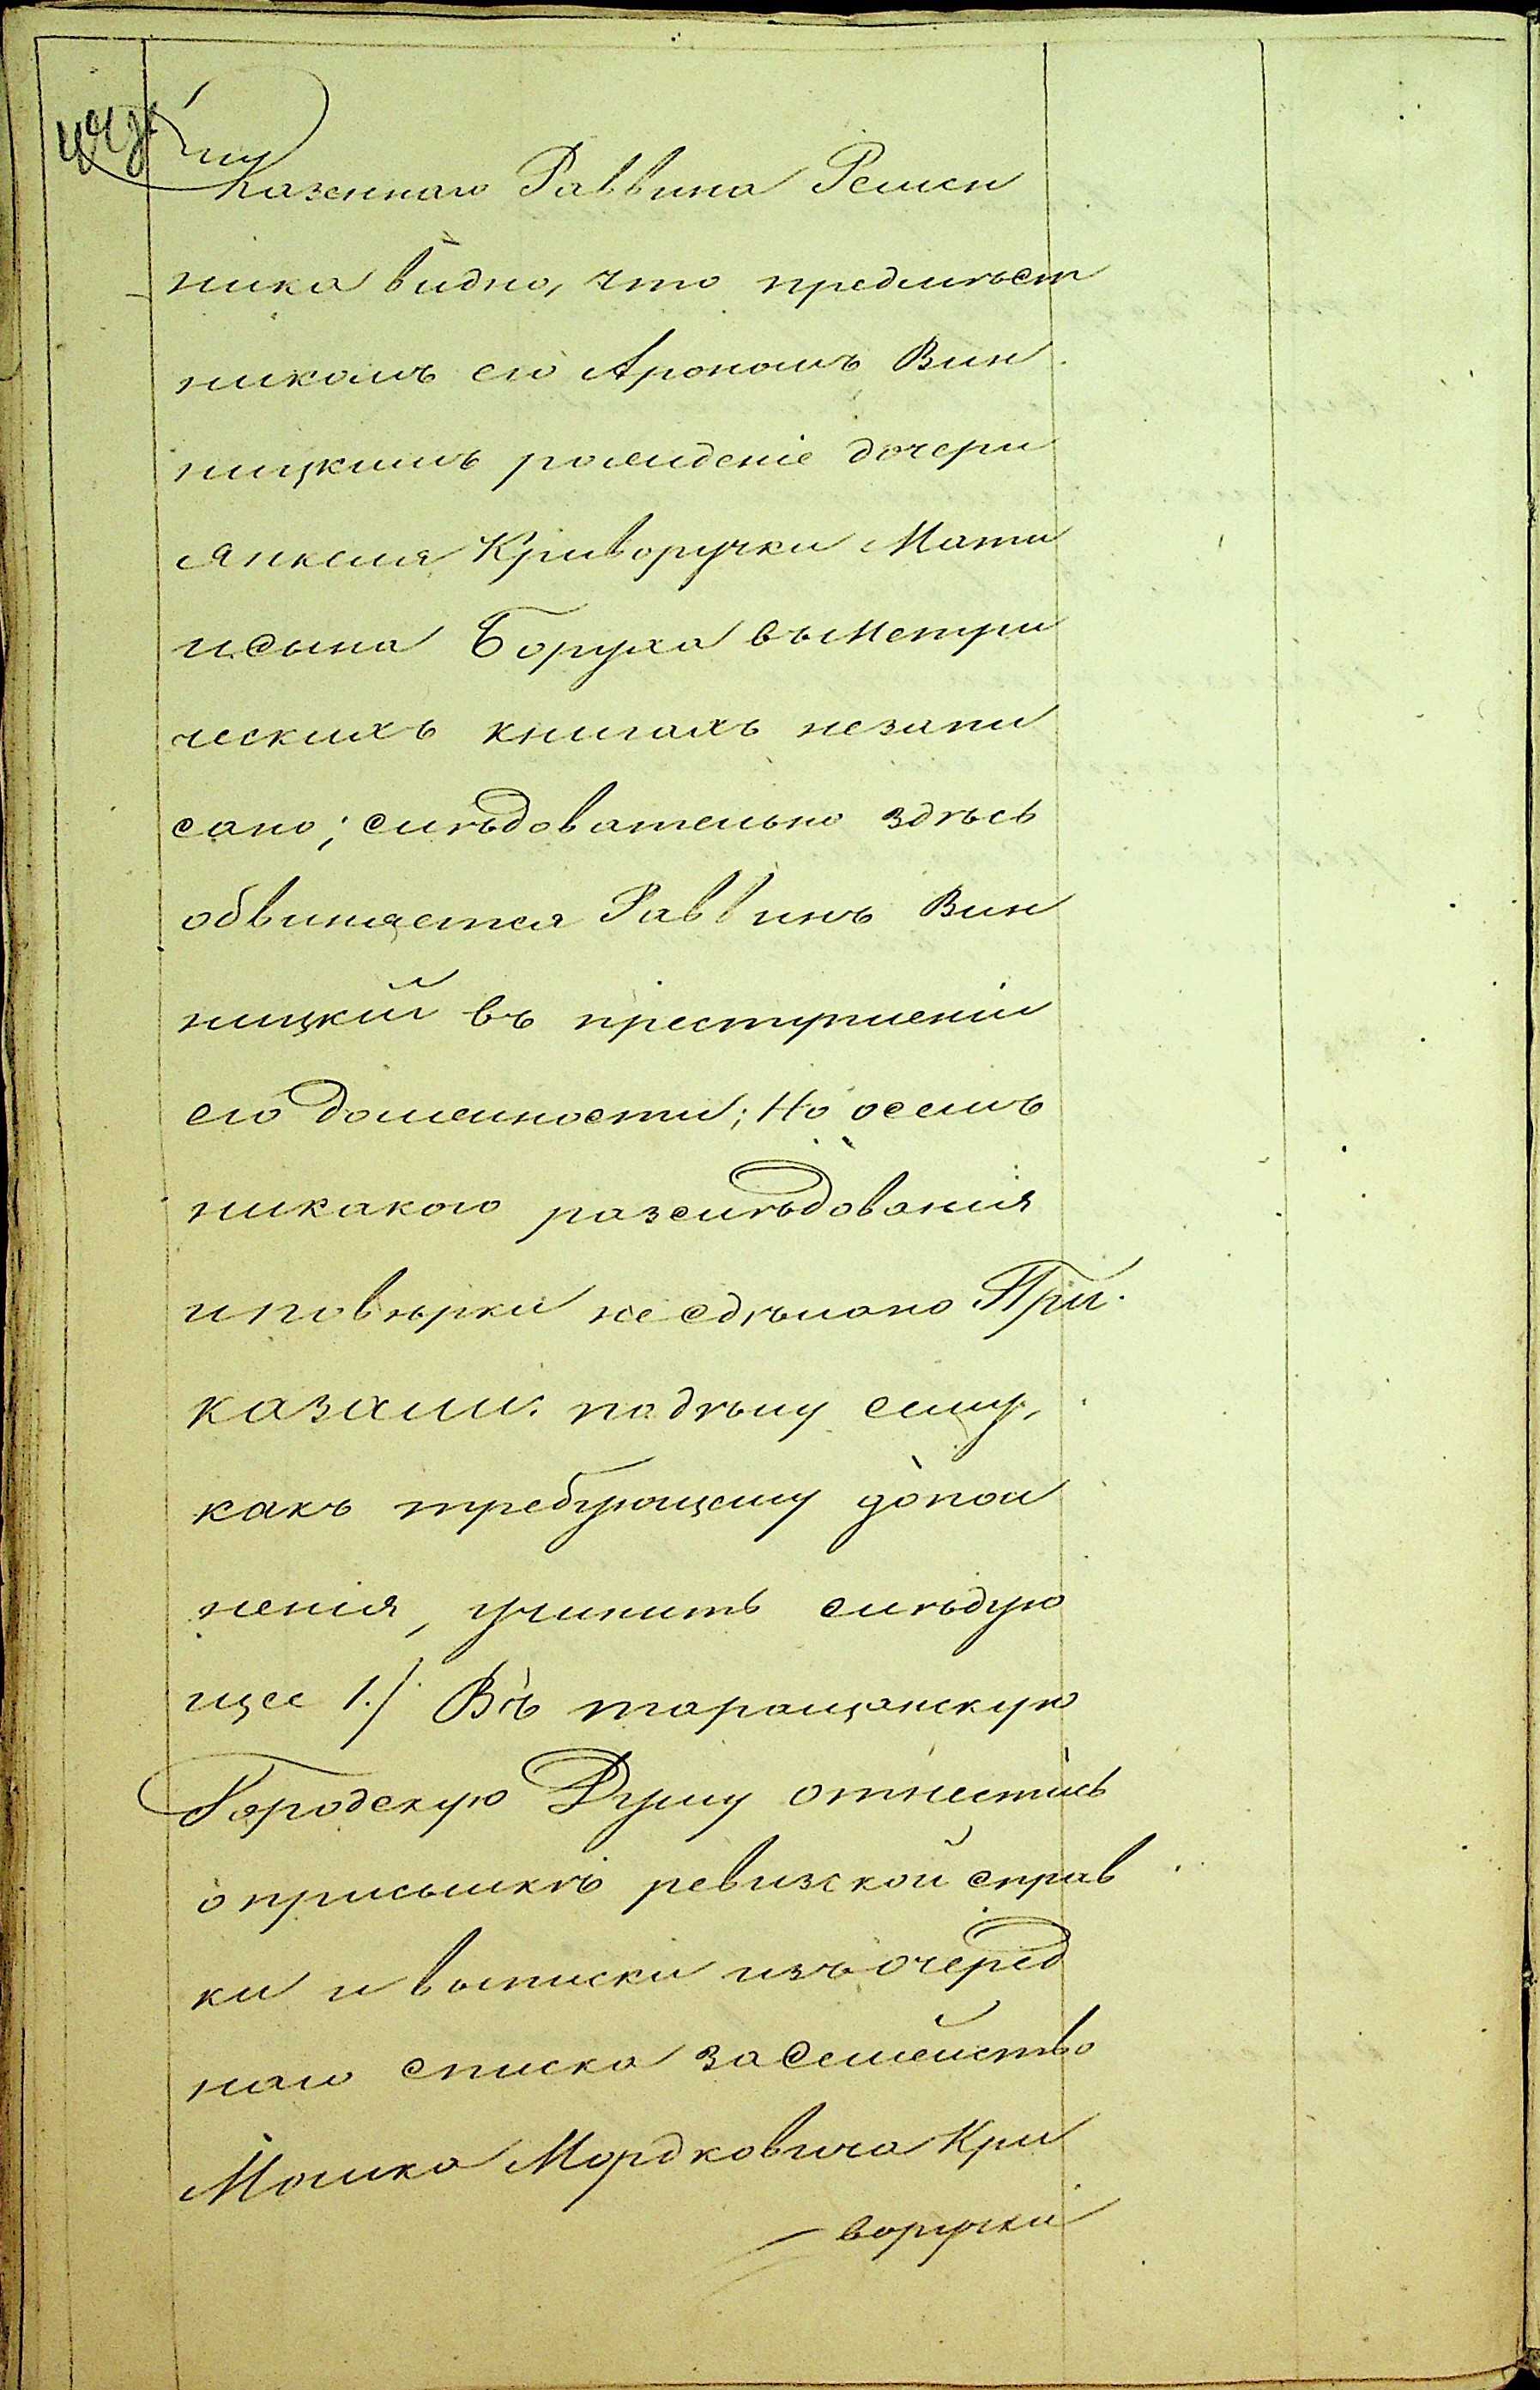 Казеннаго Раввина Ремен
ника видно, что предмѣст
никомъ его Арономъ Вин
ницкимъ рожденіе дочери
Янкеля Криворучки Мати
и сына Боруха въ Метри
ческихъ книгахъ незапи
сано; слѣдовательно здѣсь
обвиняется Раввинъ Вин
ницкій въ преступленіи
его должности; Но о семъ
никакого разслѣдованія
и повѣрки не сдѣлано При
казали: по дѣлу сему,
какъ требующему допол
ненія, учинить слѣдую
щее 1./ Въ таращанскую
Городскую Думу отнестись
о присылкѣ ревизской справ
ки и выписки изъ очеред
наго списка за Семейство
Мошка Мордковича Кри
воручки